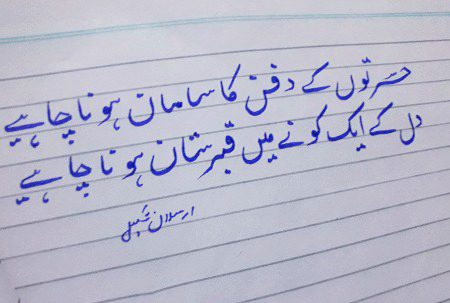 حسرتوں کے دفن کا سامان ہونا چاہیے
دل کے ایک کونے میں قبرستان ہونا چاہیے
ارسلان شبیل